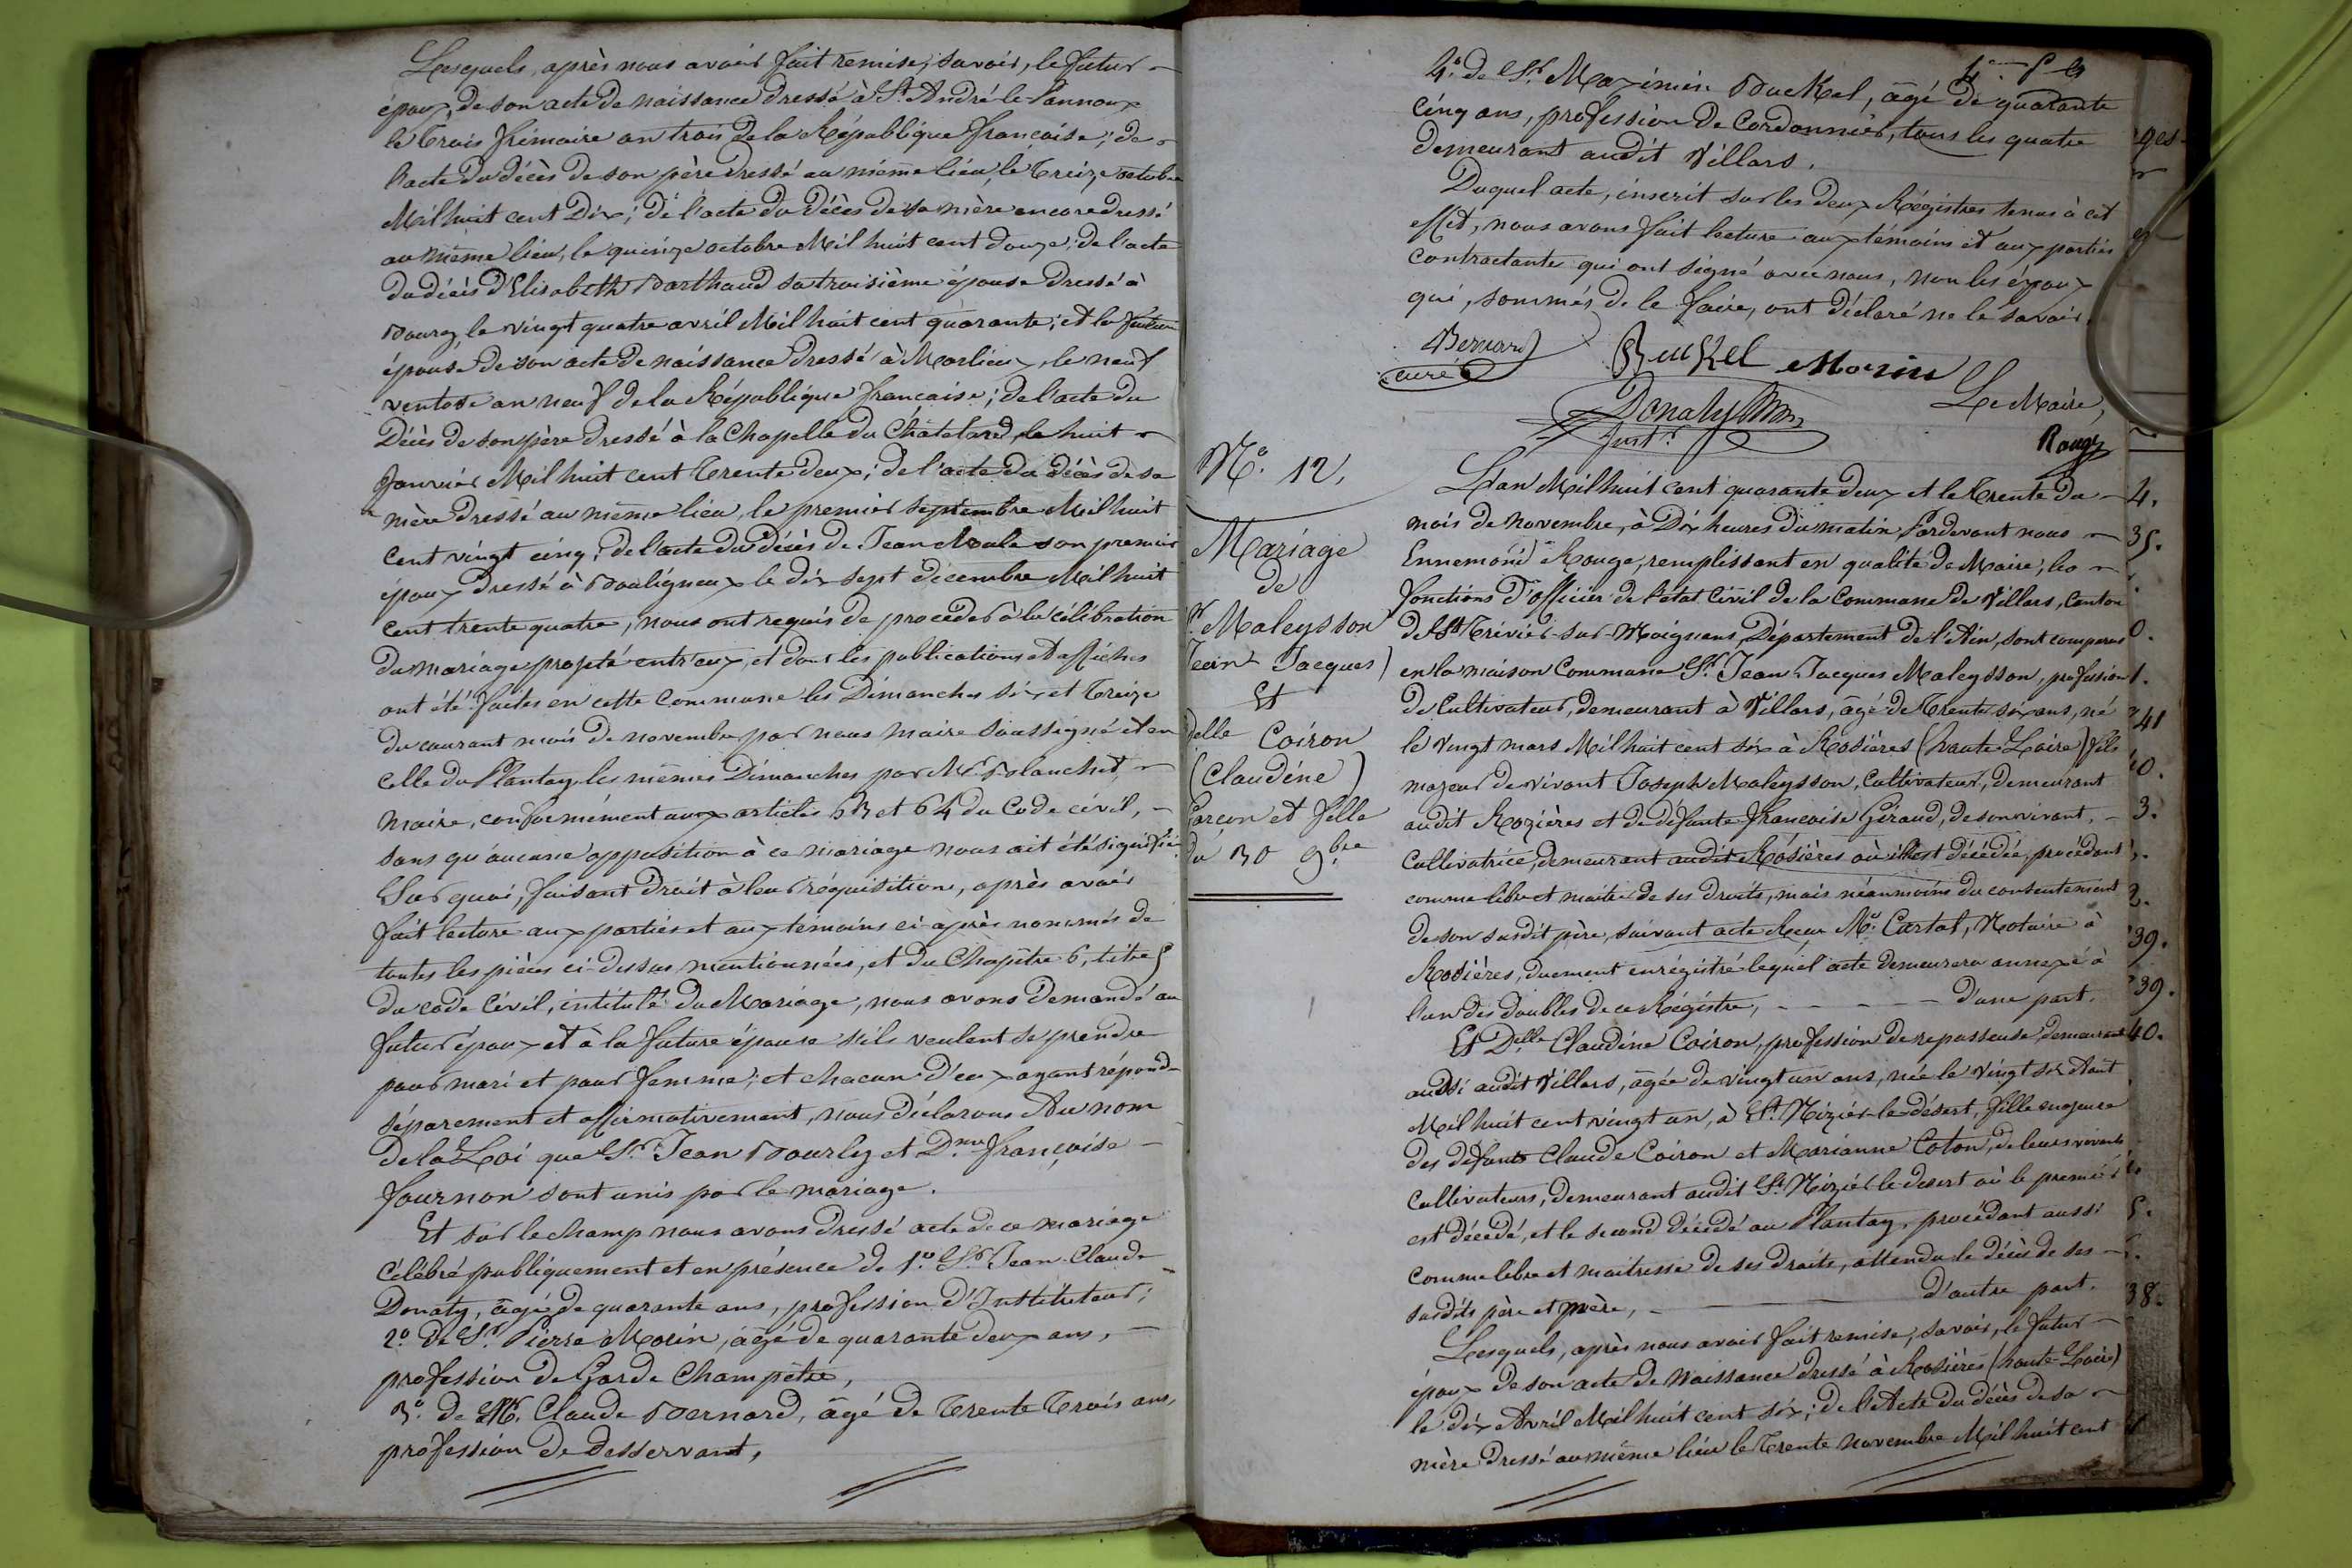 Lesquels, après nous avoir fait remise, savoir, le futur
époux, de son acte de naissance dressé à St. André le Pannoux
le trois frimaire an trois de la République française; de
l'acte du décès de son père dressé au même lieu, le treize octobre
Mil huit cent Dix; de l'acte du décès de sa mère encore dressé
au même lieu, le quinze octobre Mil huit cent douze; de l'acte
du décès d'Elisabeth Barthaud sa troisième épouse dressé à
Bourg, le vingt quatre avril Mil huit cent quarante; et la future
épouse de son acte de naissance dressé à Marlieux, le neuf
ventose an neuf de la République française; de l'acte du
Décès de son père dressé à la Chapelle du Châtelard, le huit
Janvier Mil huit cent Trente deux; de l'acte du décès de sa
mère dressé au même lieu, le premier septembre Mil huit
cent vingt cinq; de l'acte du décès de Jean son premier
époux dressé à Bouligneux le dix sept décembre Mil huit
cent trente quatre, nous ont requis de procéder à la célébration
du mariage projeté entr'eux, et dont les publications et affiches
ont été faites en cette Commune les Dimanches six et treize
du courant mois de novembre par nous maire soussigné et en
celle du Plantay les mêmes Dimanches par Mr. Blanchet,
maire, conformément aux articles 63 et 64 du Code civil,
sans qu'aucune opposition à ce mariage nous ait été signifiée
Sur quoi, faisant Droit à leur réquisition, après avoir
fait lecture aux parties et aux témoins ci-après nommés de
toutes les pièces ci-dessus mentionnées, et du Chapitre 6, titre 5
du code Civil, intitulé du Mariage, nous avons Demandé au
futur époux et à la future épouse s'ils veulent se prendre
pour mari et pour femme; et chacun d'eux ayant répondu
séparement et affirmativement, nous déclarons Au nom
de la Loi que Sr. Jean Bourley et Dme. françoise
Fournon sont unis par le mariage.
Et sur le champ nous avons dressé acte de ce mariage
célébré publiquement et en présence de 1.° Sr. Jean-Claude
Donaty, âgé de quarante ans, profession d'Instituteur;
2.° de Sr. Pierre Morin, âgé de quarante deux ans,
profession de Garde Champêtre,
3.° de Mr. Claude Bernard, âgé de Trente Trois ans,
profession de Desservant,
4.° de Sr. Maximin Buckel, âgé de quarante
cinq ans, profession de Cordonnier, tous les quatre
demeurant audit Villars.
Duquel acte, inscrit sur les deux Régistres tenus à cet
effet, nous avons fait lecture aux témoins et aux parties
contractantes qui ont signé avec nous, non les époux
qui, sommés de le faire, ont déclaré ne le savoir.
Bernard
curé
Buckel Morin
Donaty
Inst.r
Le Maire,
Rouge
N.° 12.
Mariage
de
Sr. Maleysson
(Jean Jacques)
Et
delle Coiron
(Claudine)
Garçon et fille
du 30 9bre
L'an Mil huit cent quarante deux et le Trente du
mois de novembre, à Dix heures du matin Pardevant nous
Ennemond Rouge, remplissant en qualité de Maire, les
fonctions d'officier de l'état civil de la Commune de Villars, Canton
de St. Trivier-sur-Moignans, Département de l'Ain, sont comparus
en la maison Commune Sr. Jean Jacques Maleysson, profession
de Cultivateur, demeurant à Villars, âgé de Trente six ans, né
le vingt mars Mil huit cent six à Rosières (haute Loire) fils
majeur de vivant Joseph Maleysson, Cultivateur, demeurant
audit Rozières et de défunte françoise Giraud, de son vivant,
Cultivatrice, demeurant audit Rosières où elle est décédée, procédant
comme libre et maître de ses droits, mais néanmoins du consentement
de son susdit père, suivant acte Me. Cartal, Notaire à
Rosières, duement enrégistré lequel acte demeurera annexé à
l'un des doubles de ce Régistre, d'une part.
Et Delle Claudine Coiron, profession de repasseuse, demeurant
aussi audit Villars, âgée de vingt un ans, née le vingt six Août
Mil huit cent vingt un, à St. Nizier-le-désert, fille majeure
des défunts Claude Coiron et Marianne Coton, de leurs vivants
cultivateurs, demeurant audit St. Nizier-le-desert où le premier
est décédé, et le second décédé au Plantay, procédant aussi
comme libre et maitresse de ses droits, attendu le décès de ses
susdits père et mère, d'autre part.
Lesquels, après nous avoir fait remise, savoir, le futur
époux de son acte de Naissance dressé à Rosières (haute-Loire)
le dix Avril Mil huit cent six; de l'Acte du décès de sa
mère dressé au même lieu le Trente Novembre Mil huit cent
4.
35.
0.
1.
41
40.
3.
2.
39.
39.
40.
5.
38.